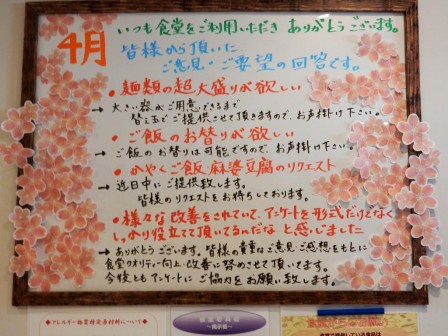 4月
いつも食堂をご利用いただき ありがとうございます。
皆様から頂いた
ご意見・ご要望の回答です。
・麺類の超大盛りが欲しい
→ 大きい器がご用意できるまで
替え玉でご提供させて頂きますので、お声掛け下さい。
・ご飯のお替りが欲しい
→ ご飯のお替りは可能ですので、お声掛け下さい。
・かやくご飯・麻婆豆腐のリクエスト
→ 近日中にご提供致します。
皆様のリクエストをお待ちしております。
・様々な改善をされていて、アンケートを形式だけでなく
しっかり役立てて頂いてるんだな と感じました
→ ありがとうございます。皆様の貴重なご意見・ご感想をもとに
食堂クオリティー向上・改善に努めさせて頂いてます。
今後ともアンケートにご協力をお願い致します。